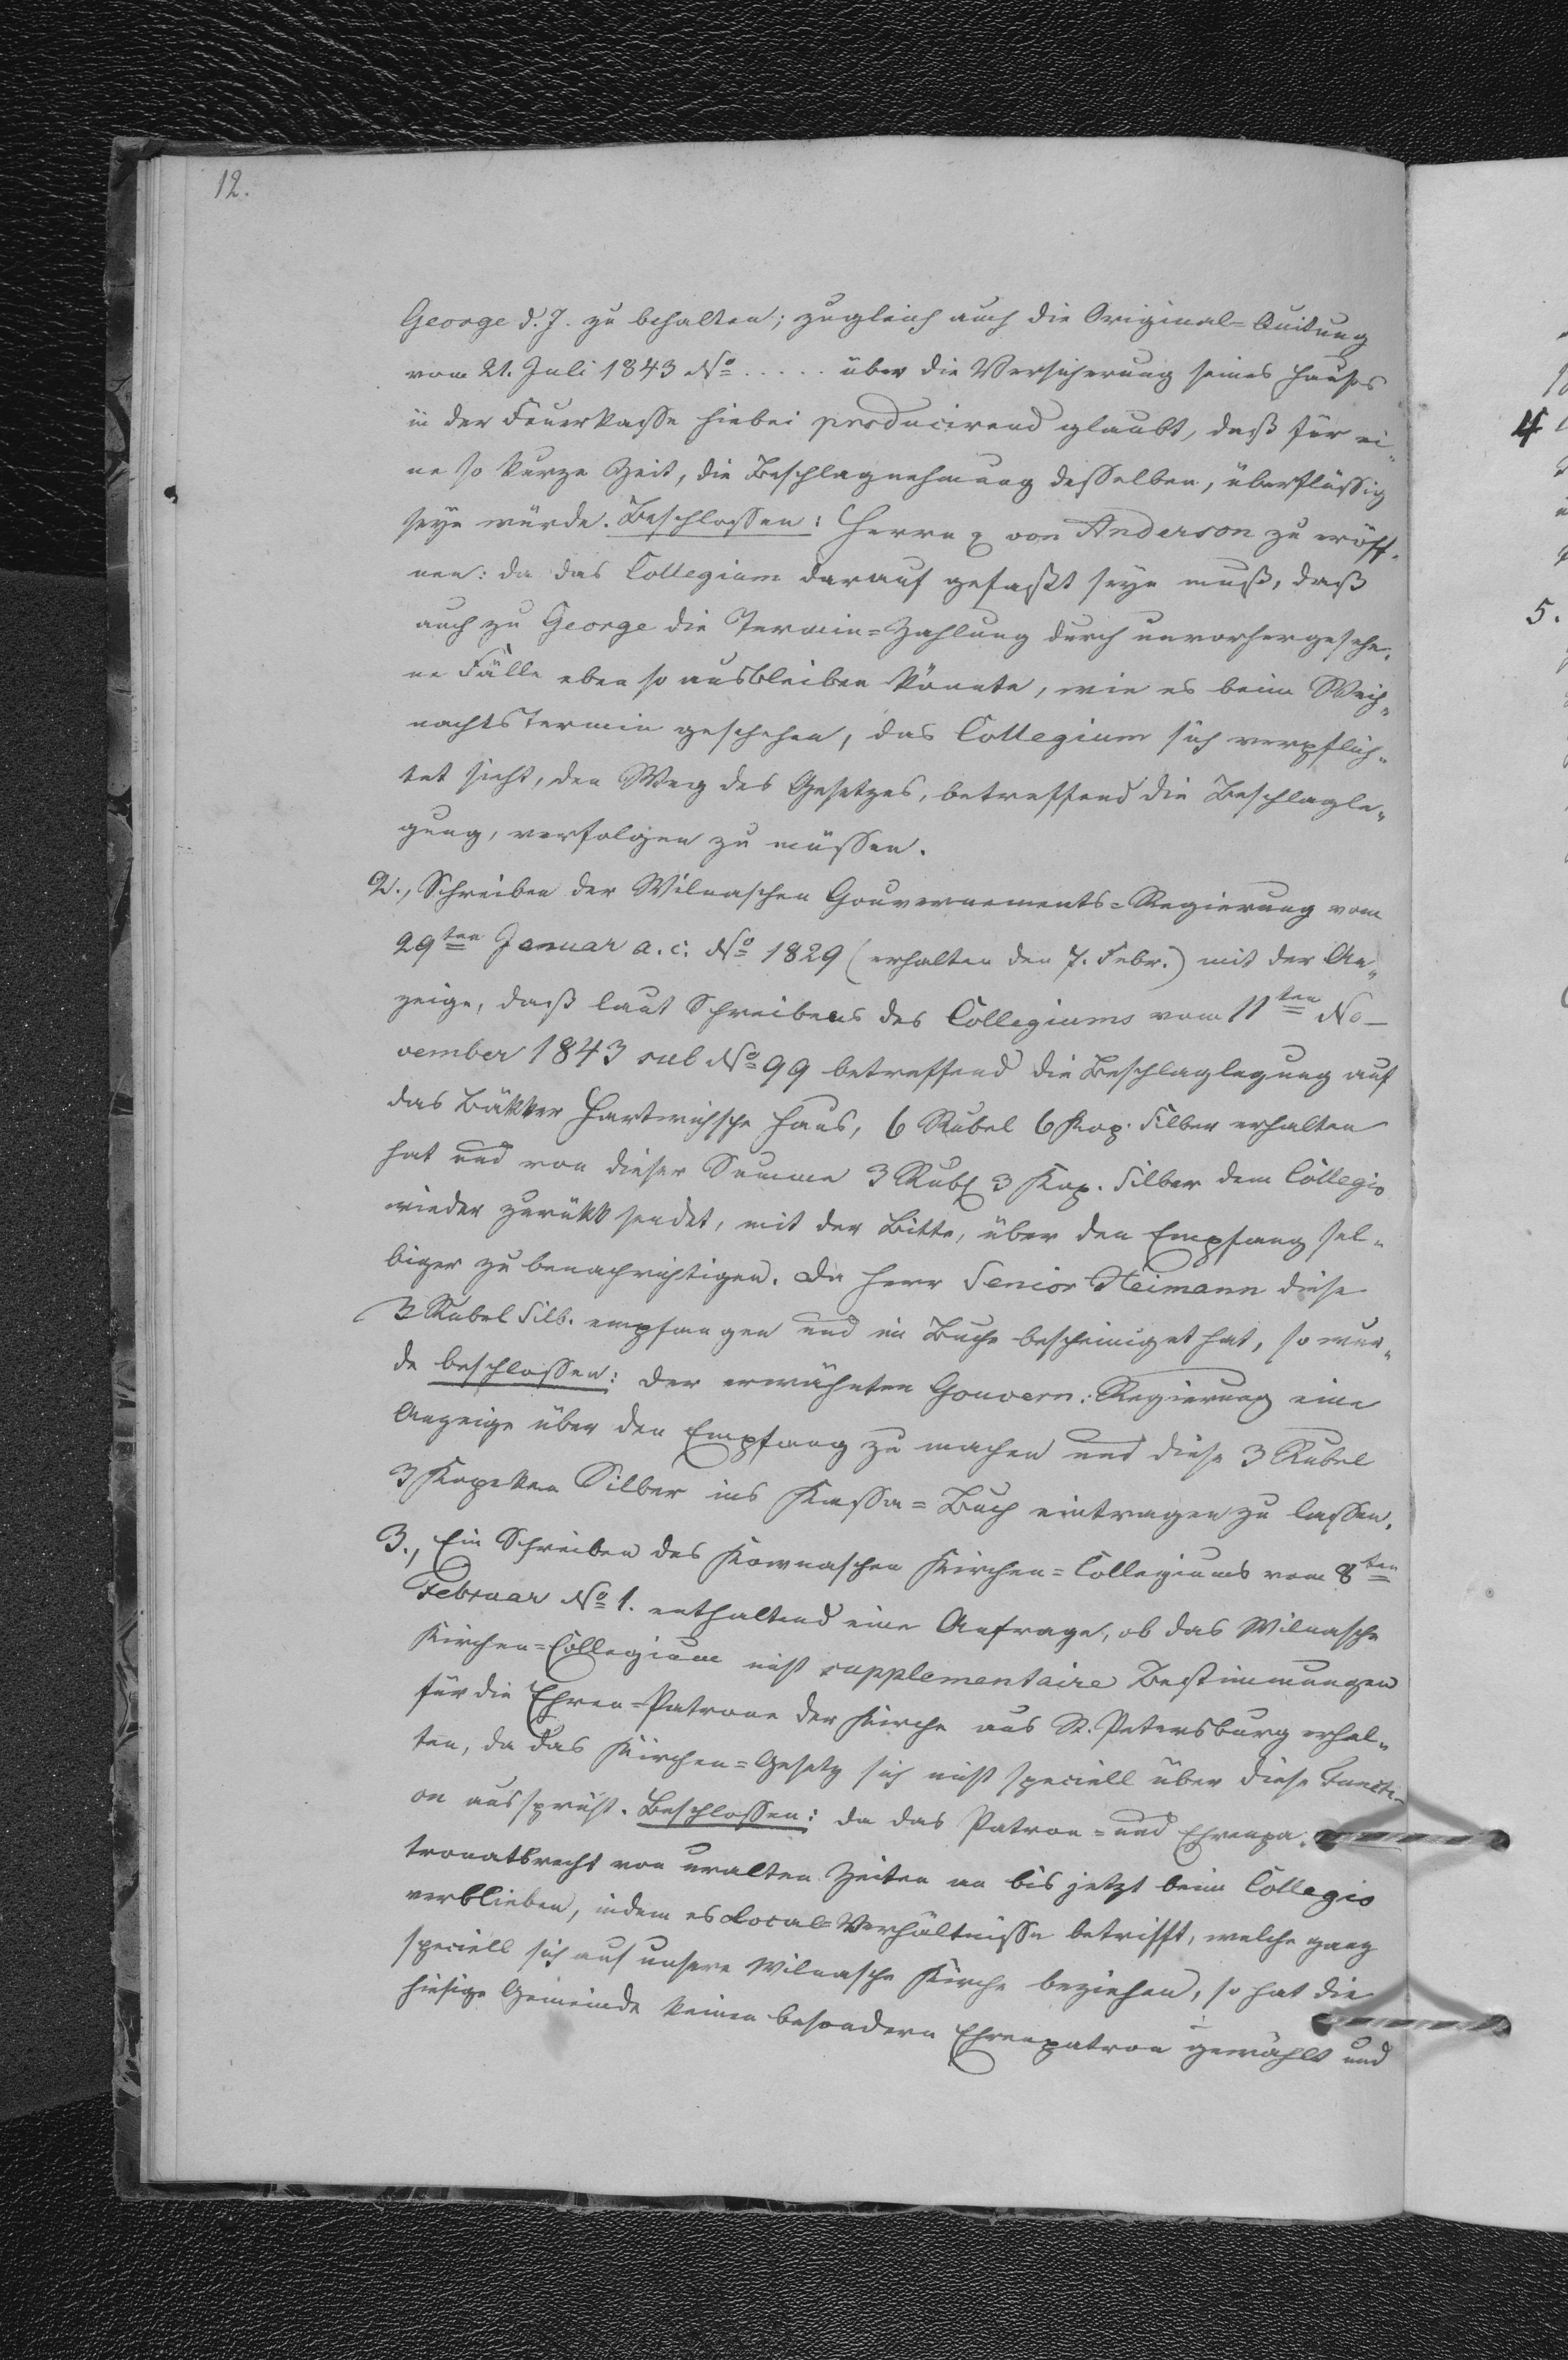 12.
George d. J. zu behalten; zugleich auch die Original-Quitung
vom 21. Juli 1843 No ..... über die Versicherung seines Hauses
in der Feuerkasse hiebei producirend glaubt, daß für ei-
ne so kurze Zeit, die Beschlagnehmung desselben, überflüssig
seyn würde. Beschlossen: Herrn von Anderson zu eröff-
nen: da das Collegium darauf gefaßt seyn muß, daß
auch zu George die Termin-Zahlung durch unvorhergesehe-
ne Fälle eben so ausbleiben könnte, wie es beim Weih-
nachtsTermin geschehen, das Collegium sich verpflich-
tet sieht, den Weg des Gesetzes, betreffend die Beschlagle-
gung, verfolgen zu müssen.
2., Schreiben der Wilnaschen Gouvernements-Regierung vom
29ten Januar a. c. No 1829 (erhalten den 7. Febr.) mit der An-
zeige, daß laut Schreibens des Collegiums vom 11ten No-
vember 1843 sub No 99 betreffend die Beschlaglegung auf
das Bäkker Hartwichsche Haus, 6 Rubel 6 Kop. Silber erhalten
hat und von dieser Summe 3 Rubl 3 Kop. Silber dem Collegio
wieder zurükk sendet, mit der Bitte, über den Empfang sel-
biger zu benachrichtigen. Da Herr Senior Heimann diese
3 Rubel Silb. empfangen und im Buche bescheiniget hat, so wur-
de beschlossen: der erwähnten Gouvern: Regierung eine
Anzeige über den Empfang zu machen und diese 3 Rubel
3 Kopeken Silber ins Kassa-Buch eintragen zu lassen.
3., Ein Schreiben des Kownaschen Kirchen-Collegiums vom 8ten
Februar No 1. enthaltend eine Anfrage, ob das Wilnasche
Kirchen-Collegium nicht supplementaire Bestimmungen
für die Ehren-Patrone der Kirche aus St. Petersburg erhal-
ten, da das Kirchen-Gesetz sich nicht speciell über diese Functi-
on ausspricht. Beschlossen: da das Patron- und Ehrenpa-
tronatsrecht von uralten Zeiten an bis jetzt beim Collegio
verblieben, indem es Local-Verhältnisse betrifft, welche ganz
speciell sich auf unsere Wilnasche Kirche beziehen, so hat die
hiesige Gemeinde keinen besondern Ehrenpatron gewählt und
4
5.